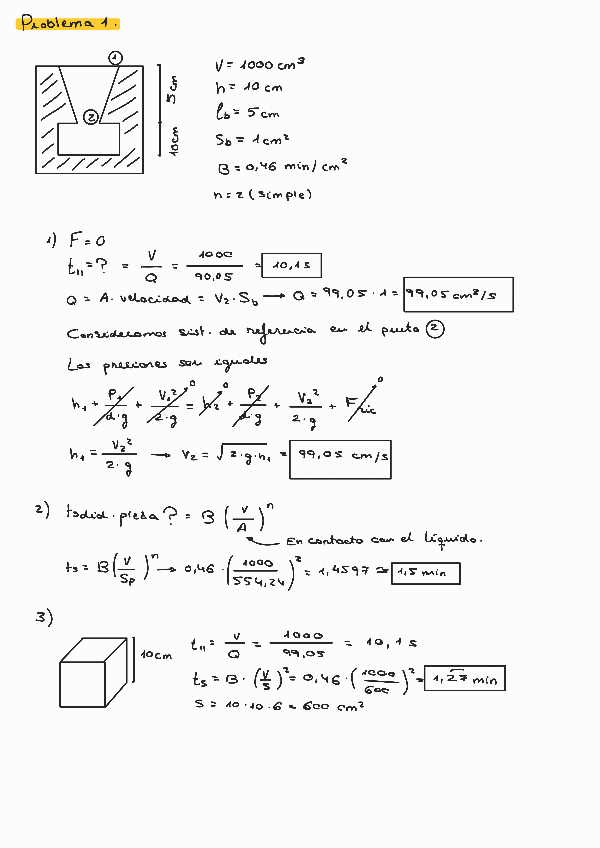 Problema 1.
1
5 cm
2
10cm
V = 1000 cm³
h = 10 cm
lb = 5 cm
Sb = 1 cm²
B = 0,46 min/cm²
n = 2 (simple)
1) F = 0
tll = ? = V/Q = 1000/90,05 = 10,1 s
Q = A. velocidad = V2 · Sb → Q = 99,05 · 1 = 99,05 cm³/s
Consideramos sist. de referencia en el punto 2
Las presiones son iguales
h1 + P1/d·g + V1²/2·g = h2 + P2/d·g + V2²/2·g + Fric
0 0 0
h1 = V2²/2·g → V2 = √2·g·h1 = 99,05 cm/s
2) tsolid. pieza ? = B (V/A)ⁿ
En contacto con el líquido.
ts = B(V/Sp)ⁿ → 0,46 · (1000/554,24)² = 1,4597 ≃ 1,5 min
3)
10cm
tll = V/Q = 1000/99,05 = 10,1 s
ts = B · (V/S)² = 0,46 · (1000/600)² = 1,27 min
S = 10·10·6 = 600 cm²